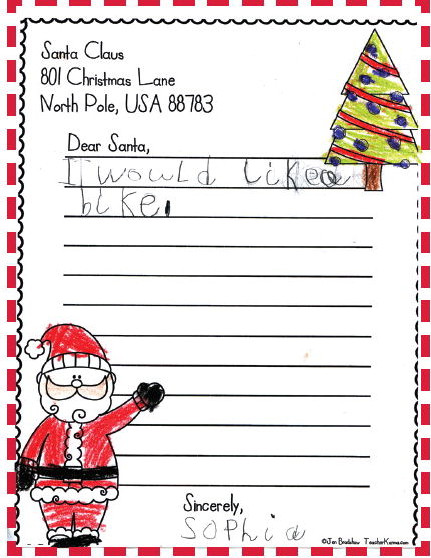 Santa Claus
801 Christmas Lane
North Pole, USA 88783
Dear Santa,
I would like a
bike.
Sincerely,
Sophia
©Jen Bradshaw TeacherKarma.com